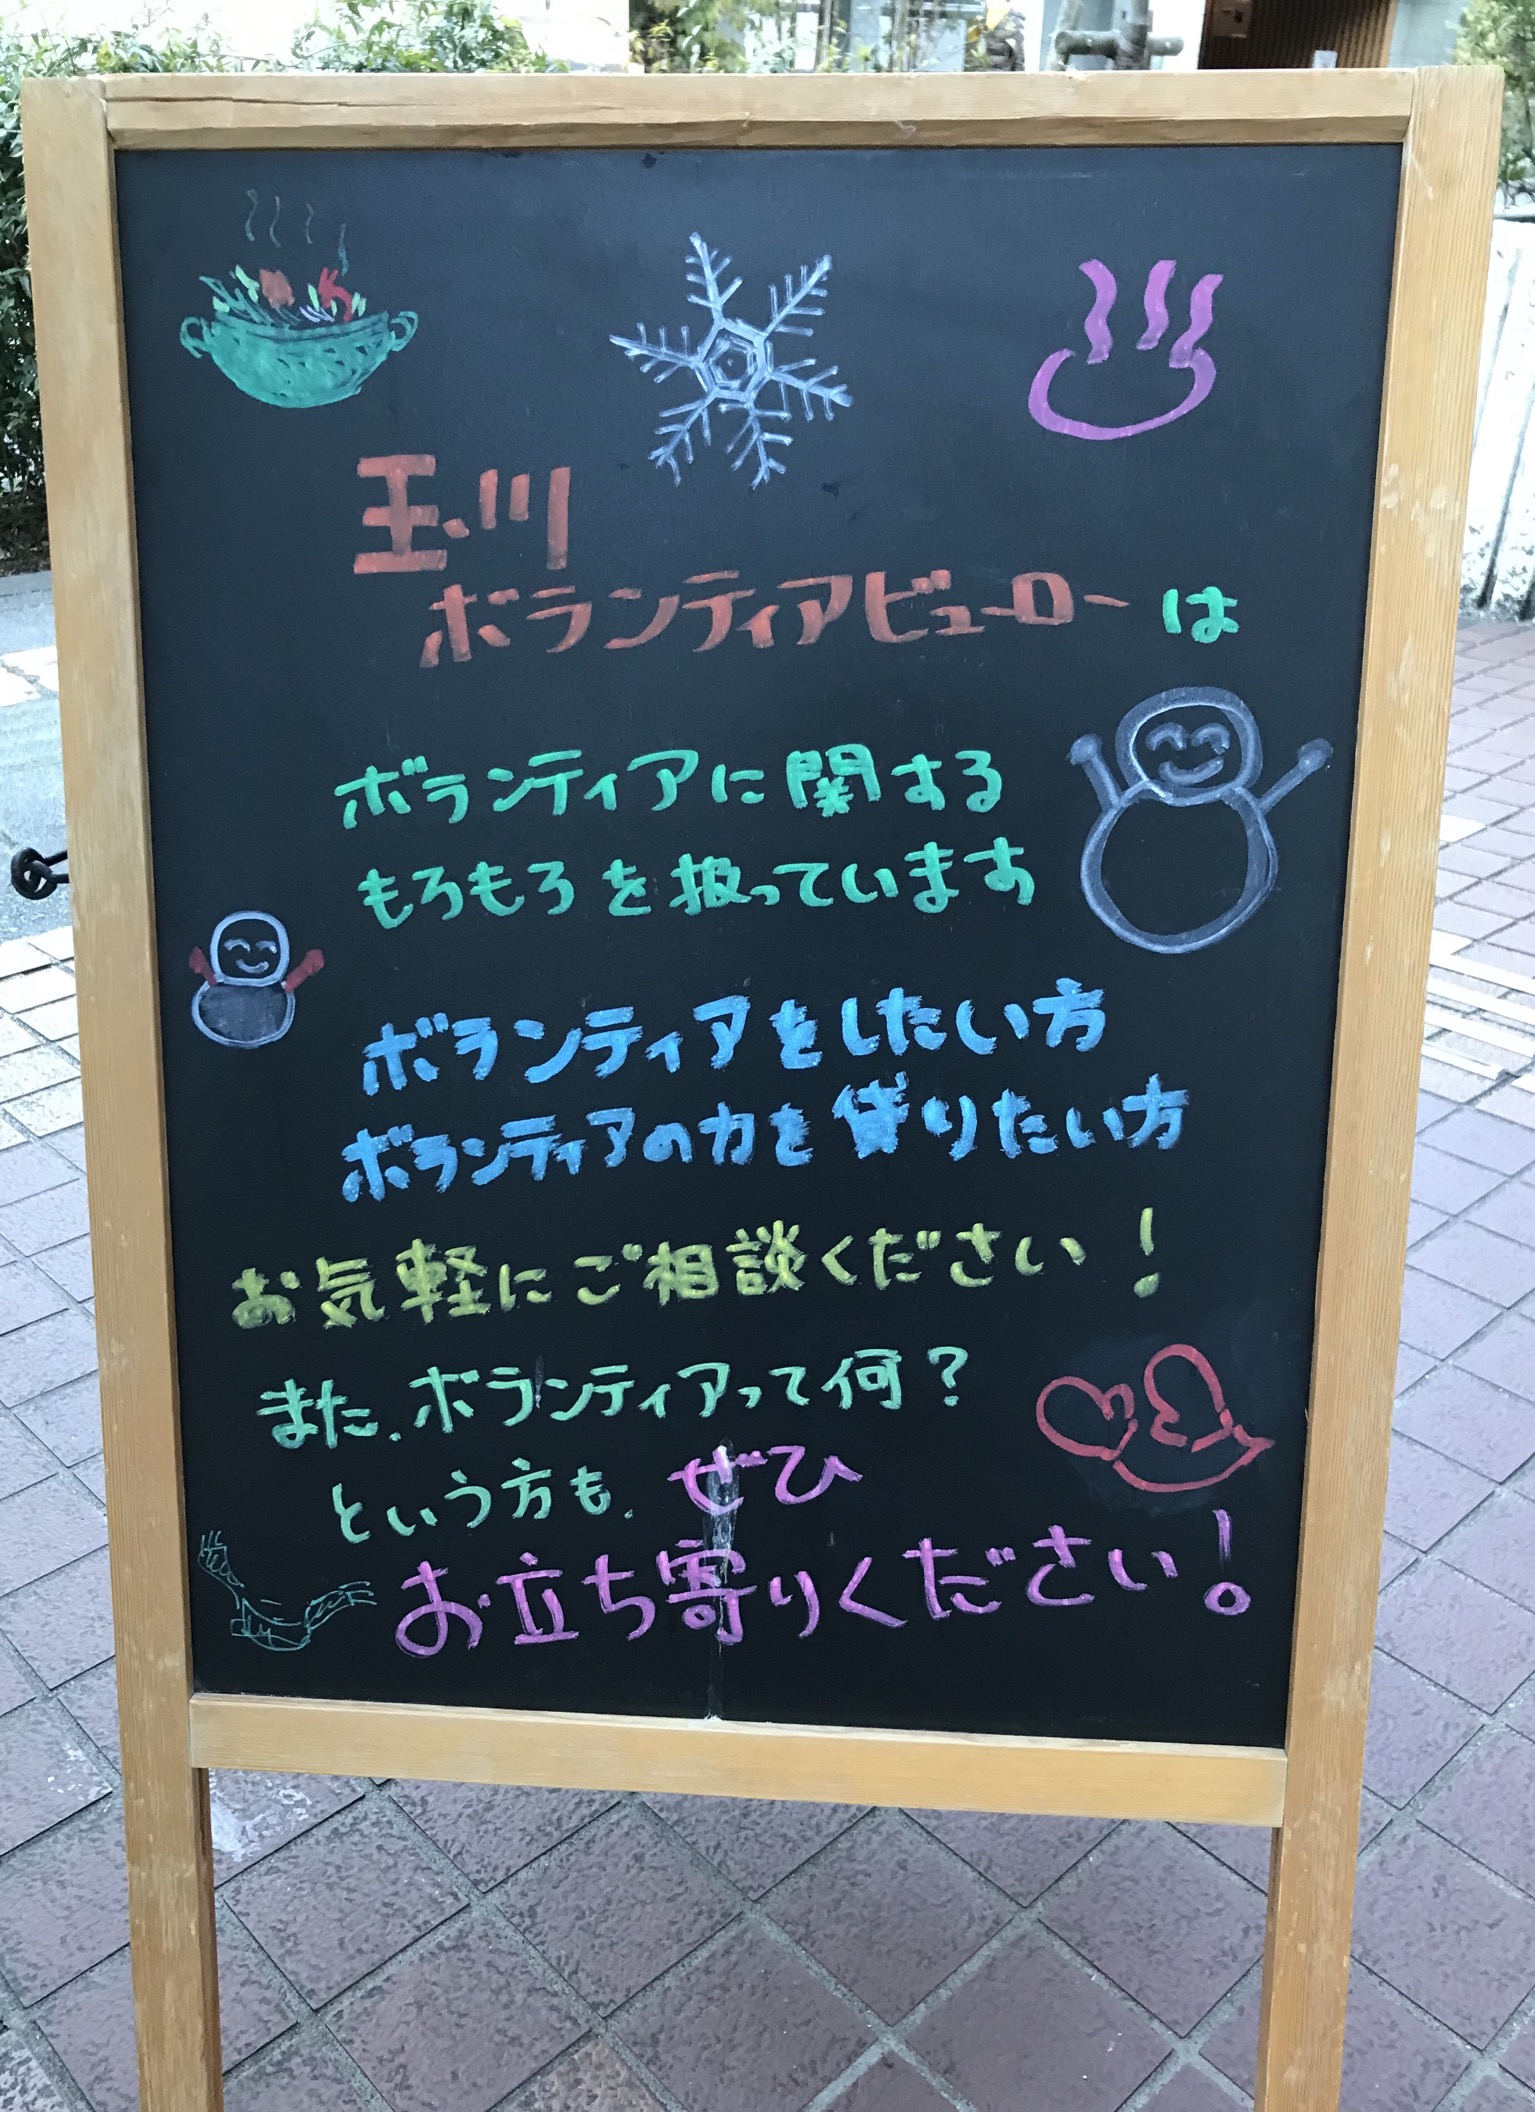 玉川
ボランティアビューローは
ボランティアに関する
もろもろを扱っています
ボランティアをしたい方
ボランティアの力を貸りたい方
お気軽にご相談ください!
また、ボランティアって何?
という方も、ぜひ
お立ち寄りください!